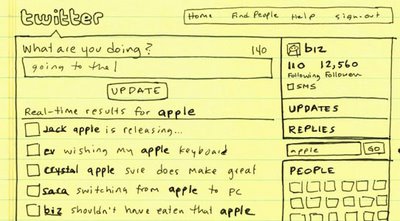 twitter
Home Find People Help Sign-out
What are you doing? 140
going to the
UPDATE
Real-time results for apple
Jack apple is releasing...
ev wishing my apple keyboard
crystal apple sure does make great
sara switching from apple to PC
biz shouldn't have eaten that apple
biz
110 12,560
Following Followers
SMS
UPDATES
REPLIES
apple GO
PEOPLE